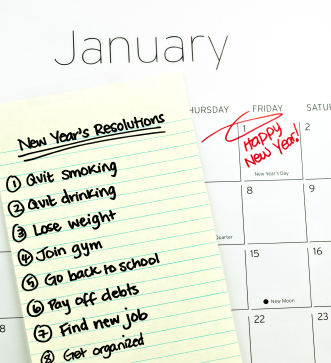 January
New Year's Resolutions
① Quit smoking
② Quit drinking
③ Lose weight
④ Join gym
⑤ Go back to school
⑥ Pay off debts
⑦ Find new job
⑧ Get organized
HURSDAY FRIDAY SATU
1 2
Happy
New Year!
New Year's Day
8 9
Quarter
15 16
New Moon
8 22 23